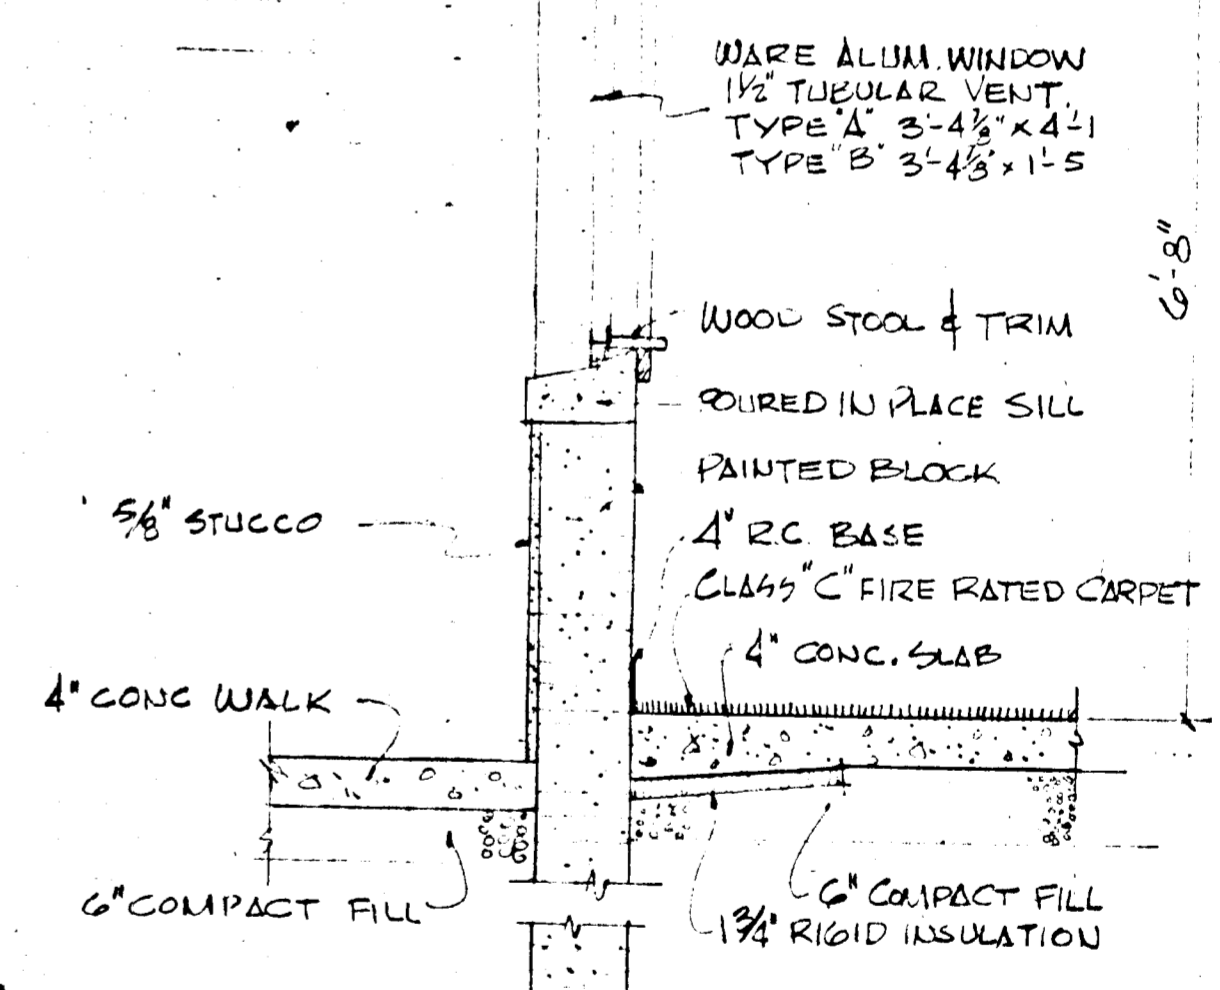 WARE ALUM. WINDOW
1½" TUBULAR VENT.
TYPE "A" 3'-4⅞" x 4'-1
TYPE "B" 3'-4⅞" x 1'-5
6'-8"
WOOD STOOL & TRIM
POURED IN PLACE SILL
PAINTED BLOCK
5/8" STUCCO
4" R.C. BASE
CLASS "C" FIRE RATED CARPET
4" CONC. SLAB
4" CONC WALK
6" COMPACT FILL
6" COMPACT FILL
1¾" RIGID INSULATION